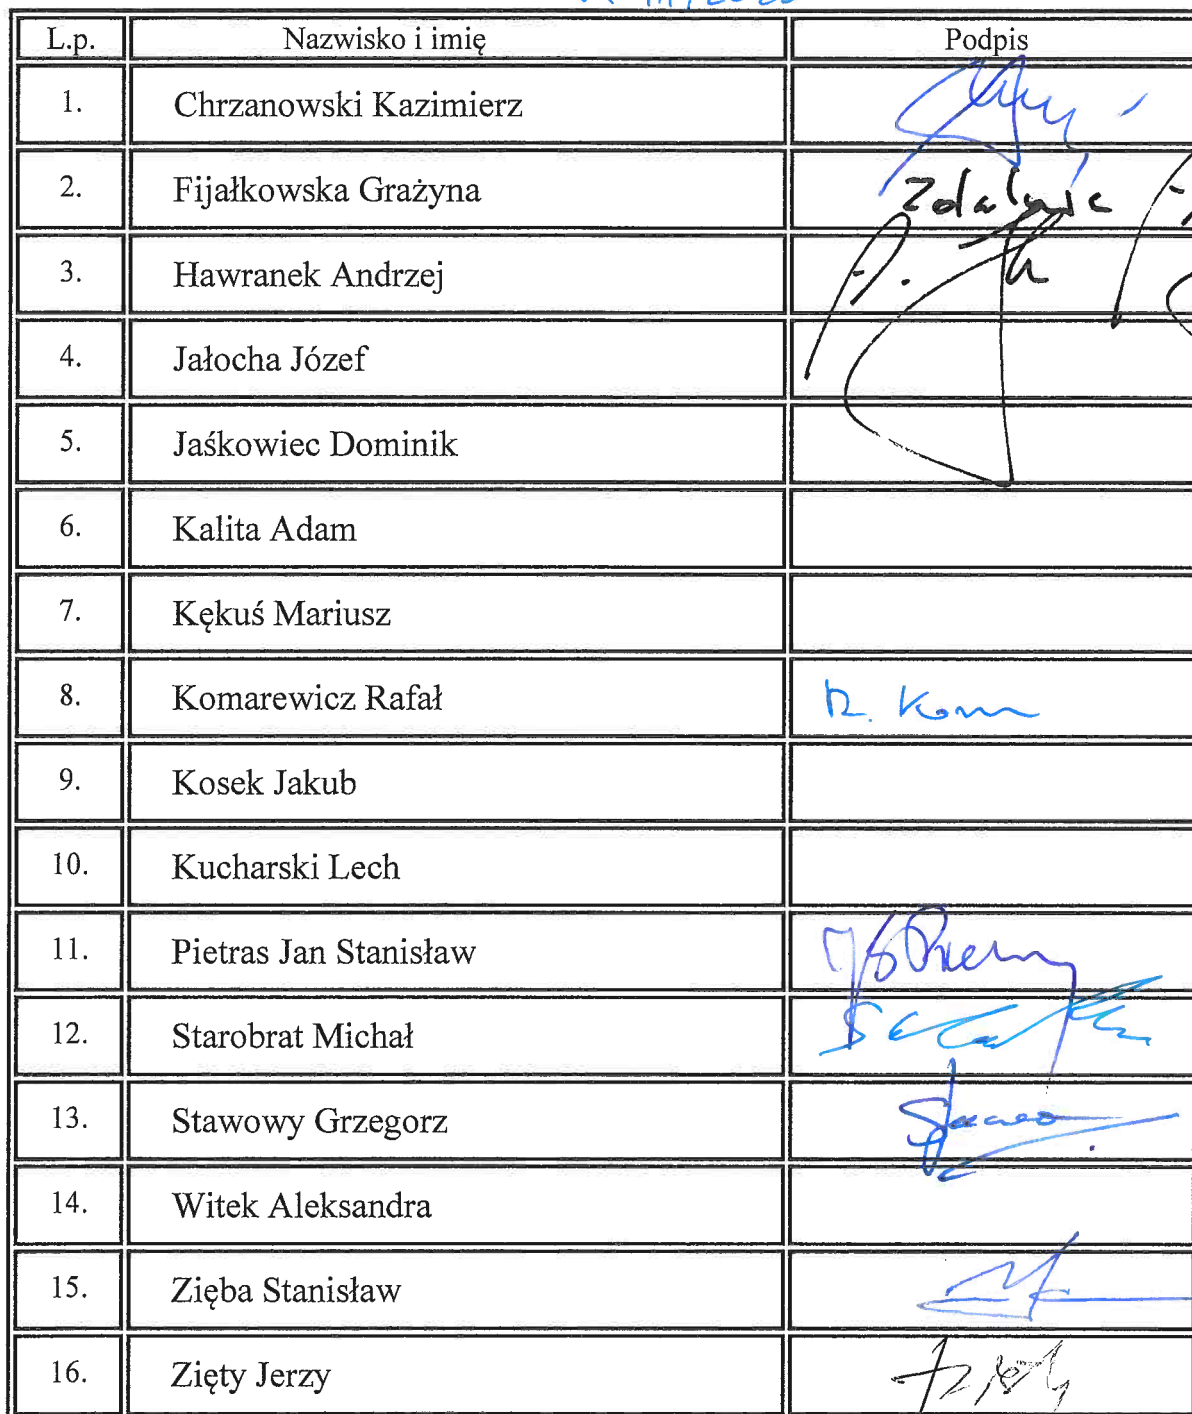 L.p. Nazwisko i imię Podpis
1. Chrzanowski Kazimierz
2. Fijałkowska Grażyna Zdalnie
3. Hawranek Andrzej
4. Jałocha Józef
5. Jaśkowiec Dominik
6. Kalita Adam
7. Kękuś Mariusz
8. Komarewicz Rafał R. Kom
9. Kosek Jakub
10. Kucharski Lech
11. Pietras Jan Stanisław
12. Starobrat Michał
13. Stawowy Grzegorz
14. Witek Aleksandra
15. Zięba Stanisław
16. Zięty Jerzy